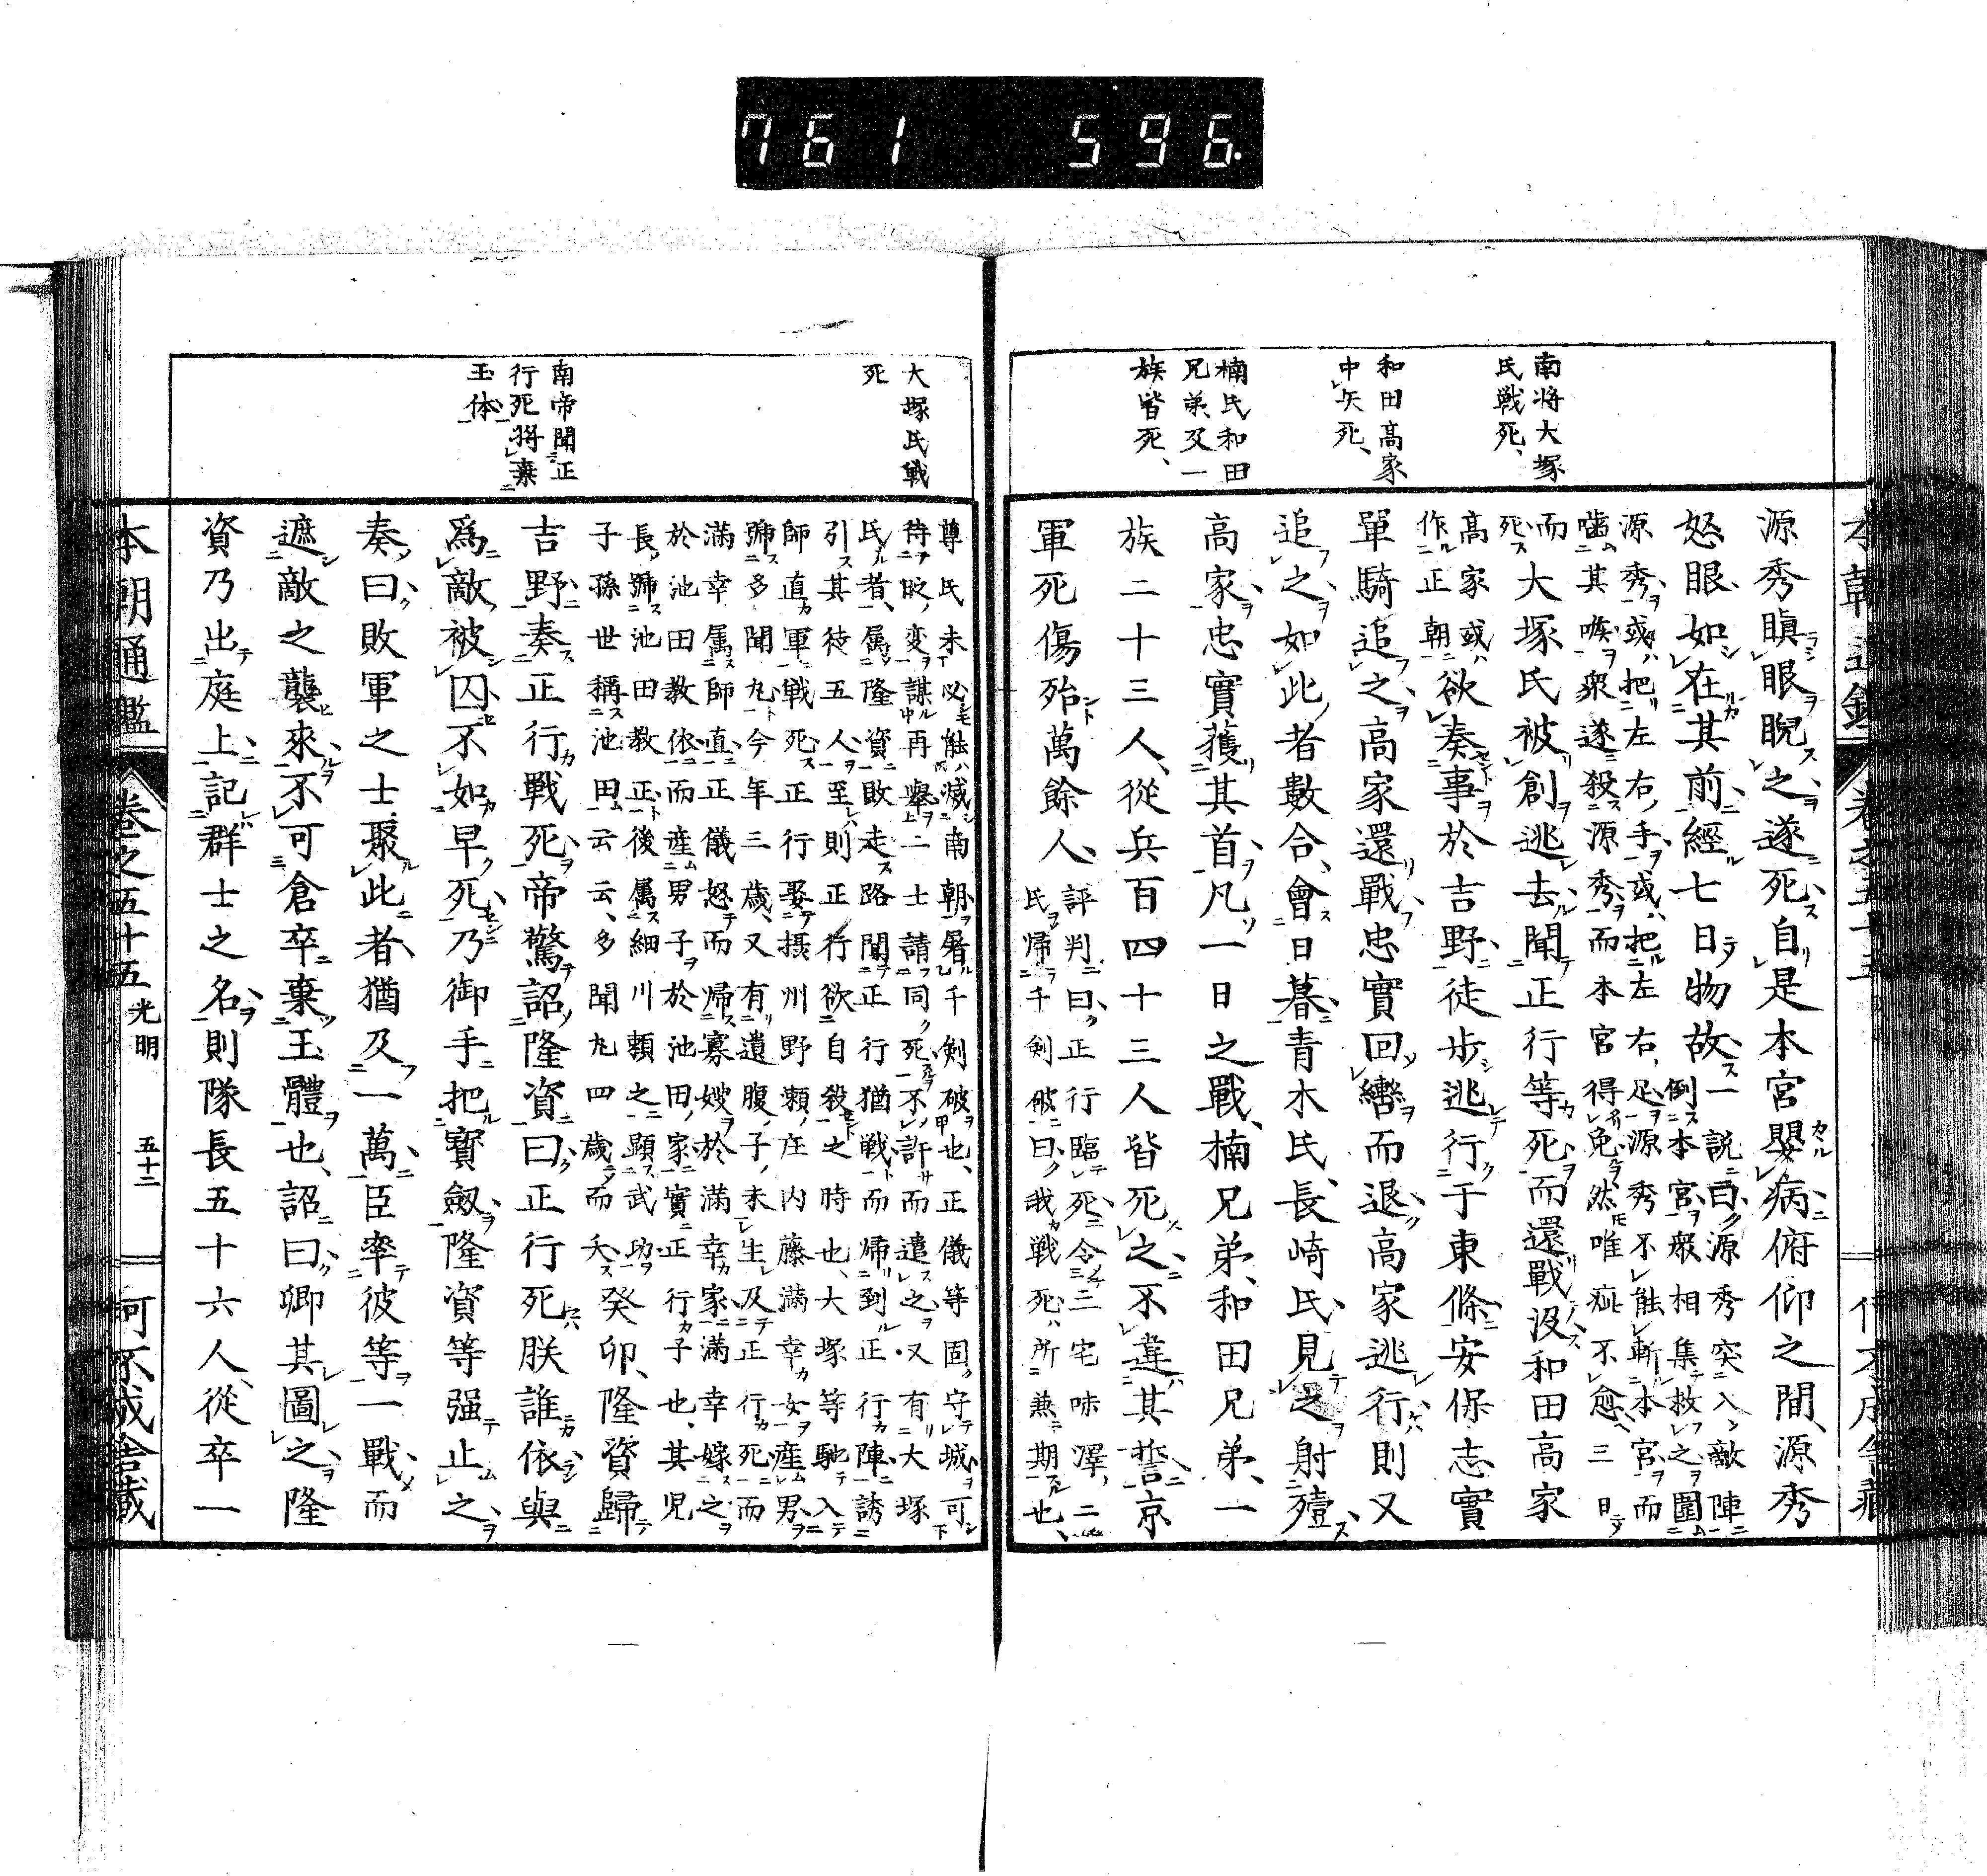 761 596.
南将大塚
氏戦死、
和田高家
中矢死、
楠氏和田
兄弟、及一
族皆死、
源秀瞋眼睨之遂死自是本宮嬰病俯仰之間、源秀
怒眼如在其前經七日物故
一説曰源秀突入敵陣
倒本宮衆相集救之圍
源秀或把左右手或把左右足源秀不能斬本宮而
嚙其喉衆遂殺源秀而本宮得免然唯疵不愈三日
而
死
大塚氏被創逃去聞正行等死而還戰没和田高家
高家或
作正朝
欲奏事於吉野徒歩逃行于東條安保志實
單騎追之高家還戰忠實回轡而退高家逃行則又
追之如此者數合、會日暮青木氏、長崎氏見之射殪
高家忠實獲其首凡一日之戰、楠兄弟、和田兄弟、一
族二十三人、從兵百四十三人皆死之不違其誓京
軍死傷殆萬餘人、
評判曰正行臨死令三宅味澤二
氏帰千剣破曰我戦死所兼期也、
大塚氏戦
死
南帝聞正
行死将棄
玉体
尊氏未必能滅南朝屠千剣破也、正儀等固守城可
待時変謀再舉二士請同死不許而遣之又有大塚
氏者、属隆資敗走路聞正行猶戦而帰到正行陣誘
引其徒五人至則正行欲自殺之時也、大塚等馳入
師直軍戦死正行娶摂州野瀬庄内藤満幸女産男
號多聞丸今年三歳、又有遺腹子未生及正行死而
満幸属師直正儀怒而帰寡嫂於満幸家満幸嫁之
於池田教依而産男子於池田家實正行子也、其児
長號池田教正後属細川頼之顕武功
子孫世稱池田云云、多聞丸四歳而夭
癸卯、隆資歸
吉野奏正行戰死帝驚詔隆資曰正行死朕誰依與
爲敵被囚不如早死乃御手把寶劔隆資等强止之
奏曰敗軍之士聚此者猶及一萬臣率彼等一戰而
遮敵之襲來不可倉卒棄玉體也、詔曰卿其圖之隆
資乃出庭上記群士之名則隊長五十六人、從卒一
本朝通鑑 卷之五十五 光明 五十二